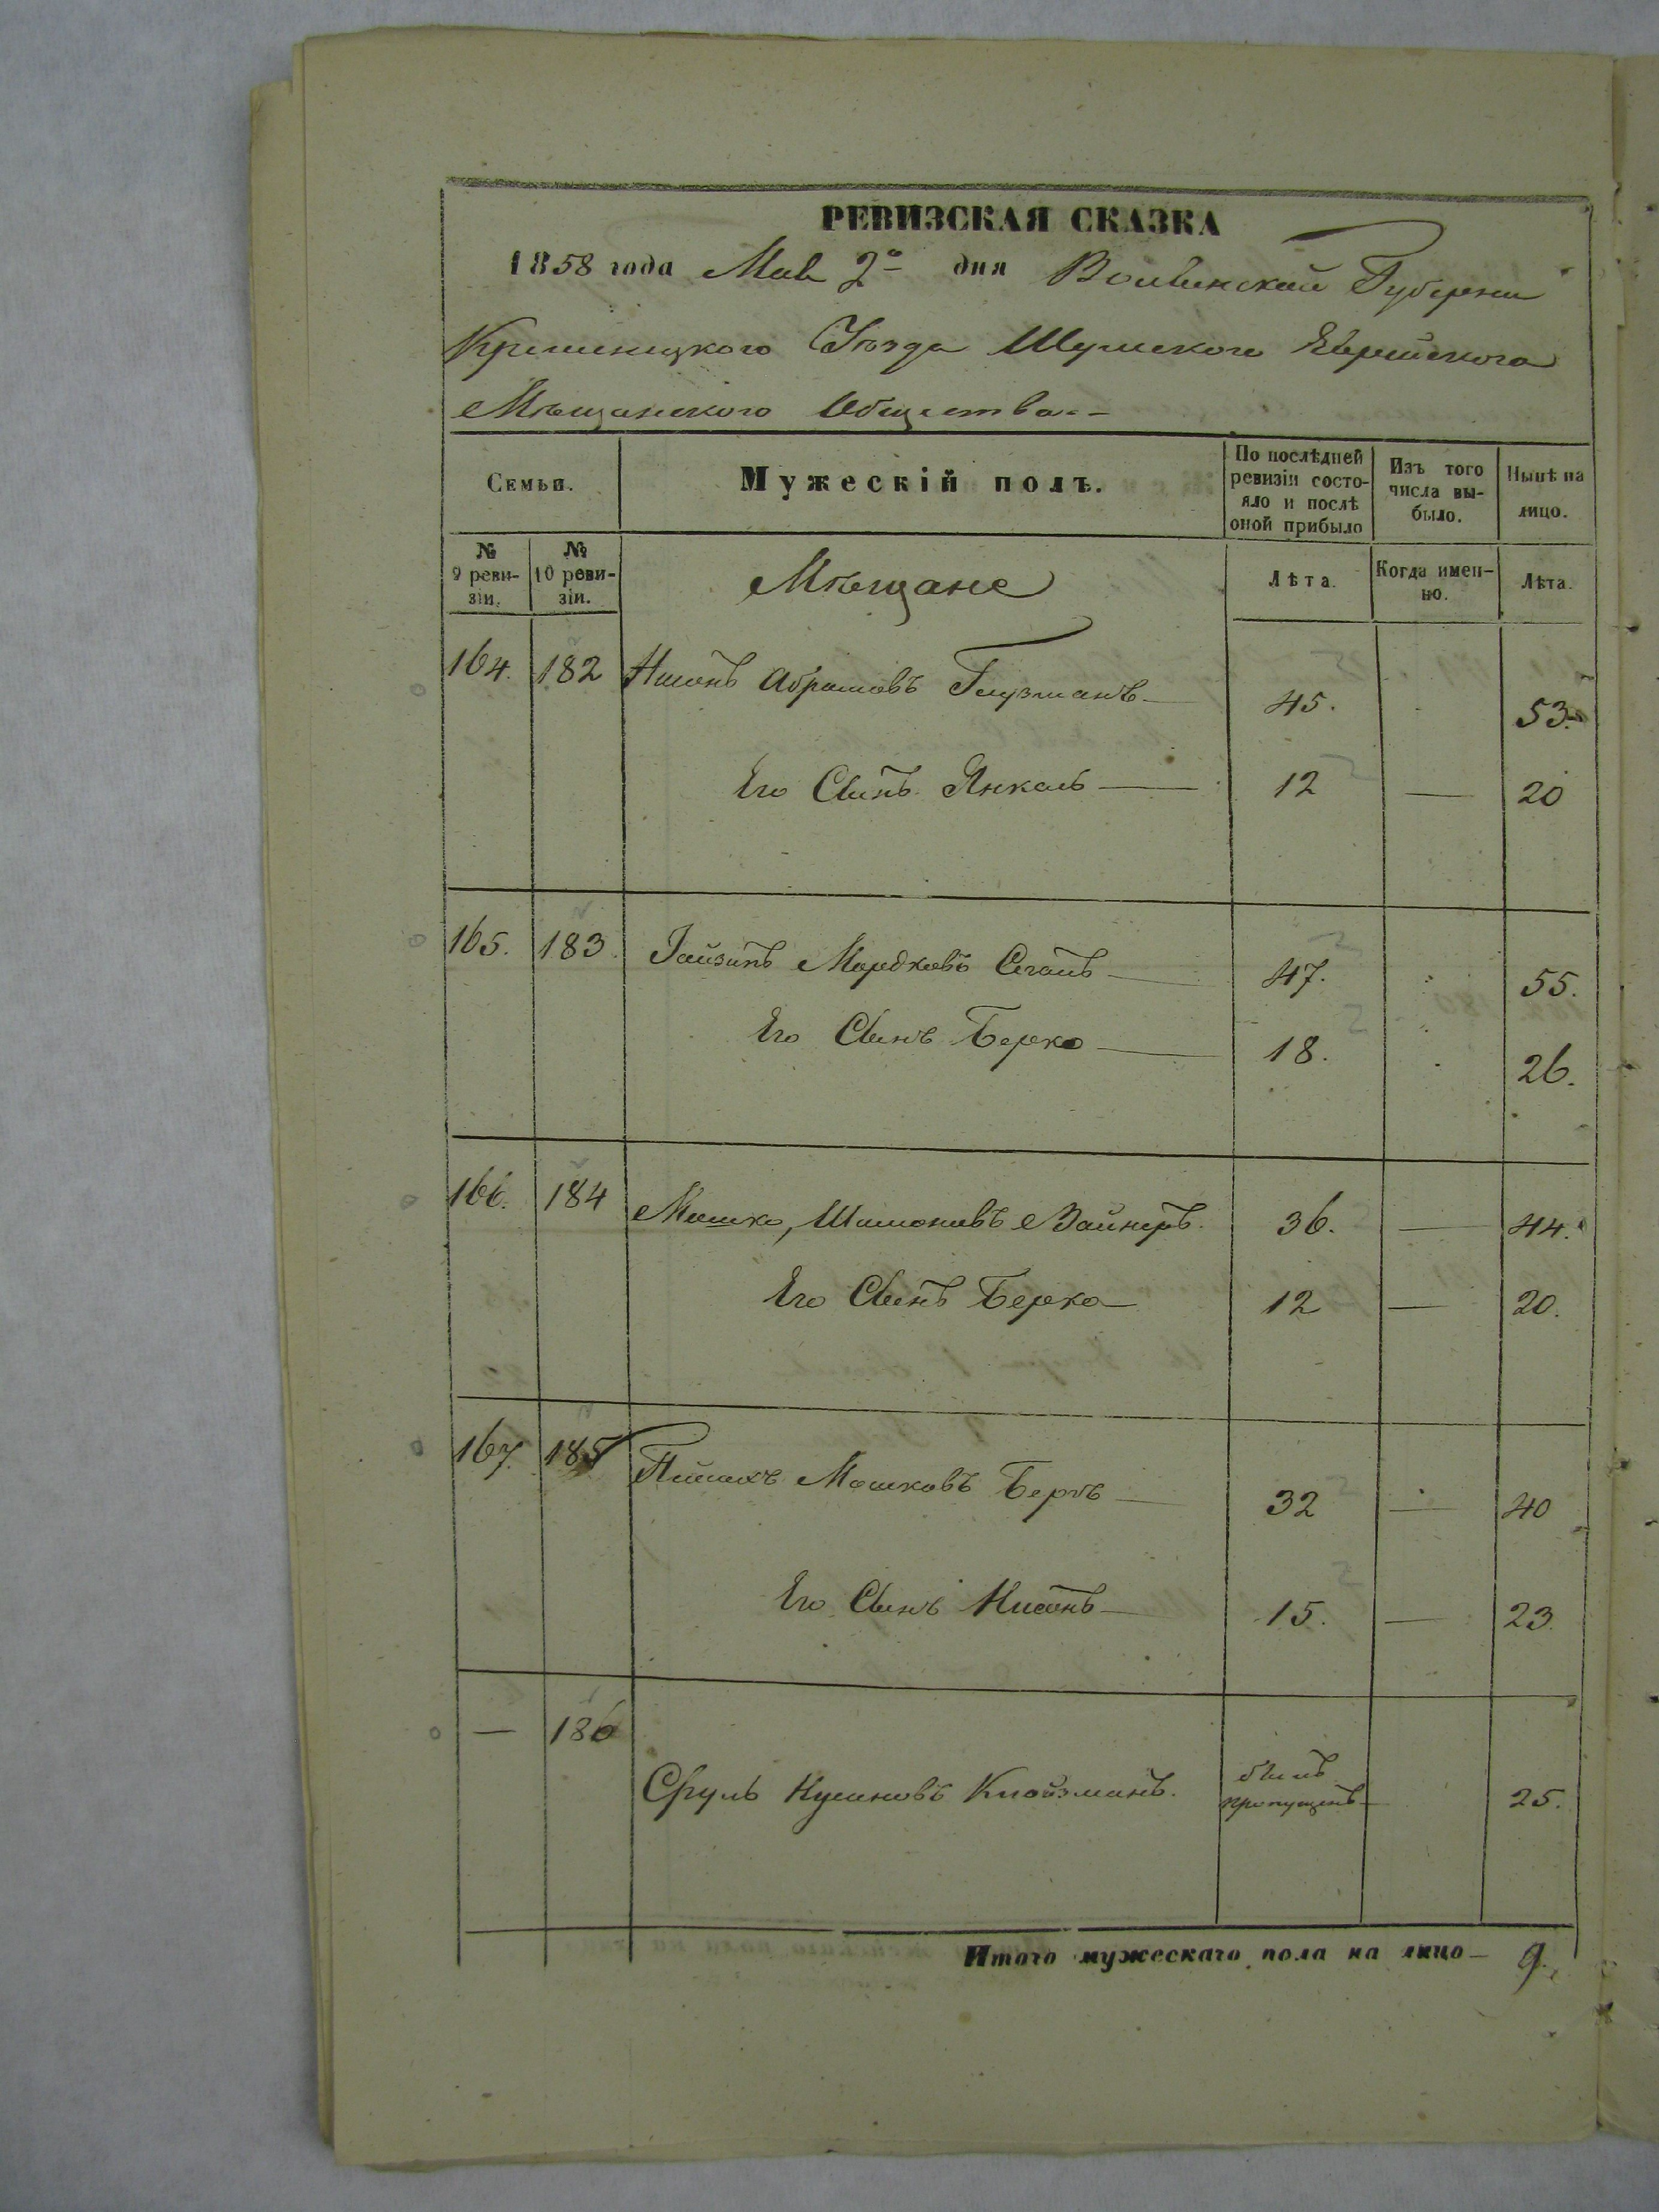 РЕВИЗСКАЯ СКАЗКА
1858 года Мая 2го дня Волынской Губернии
Кременецкого Уѣзда Шумского Еврейского
Мѣщанского Общества
Семьи.
Мужескій полъ.
По послѣдней ревизіи состояло и послѣ оной прибыло
Изъ того числа выбыло.
Нынѣ на лицо.
№ 9 ревизіи.
№ 10 ревизіи.
Мѣщане
Лѣта.
Когда именно.
Лѣта.
164. 182 Абрамовъ Глузманъ 45. 53.
Его Сынъ Янкель 12 — 20
165. 183. Мордковъ Сегалъ 47. 55.
Его Сынъ Берко 18. 26.
166. 184 Мошко Шимоновъ Вайнеръ 36. — 44.
Его Сынъ Берко 12 — 20.
167. 185 Мошковъ Беръ 32 — 40
Его Сынъ Нисонъ 15. — 23.
— 186
Сруль Клойзманъ. былъ пропущенъ 25.
Итого мужескаго пола на лицо — 9.